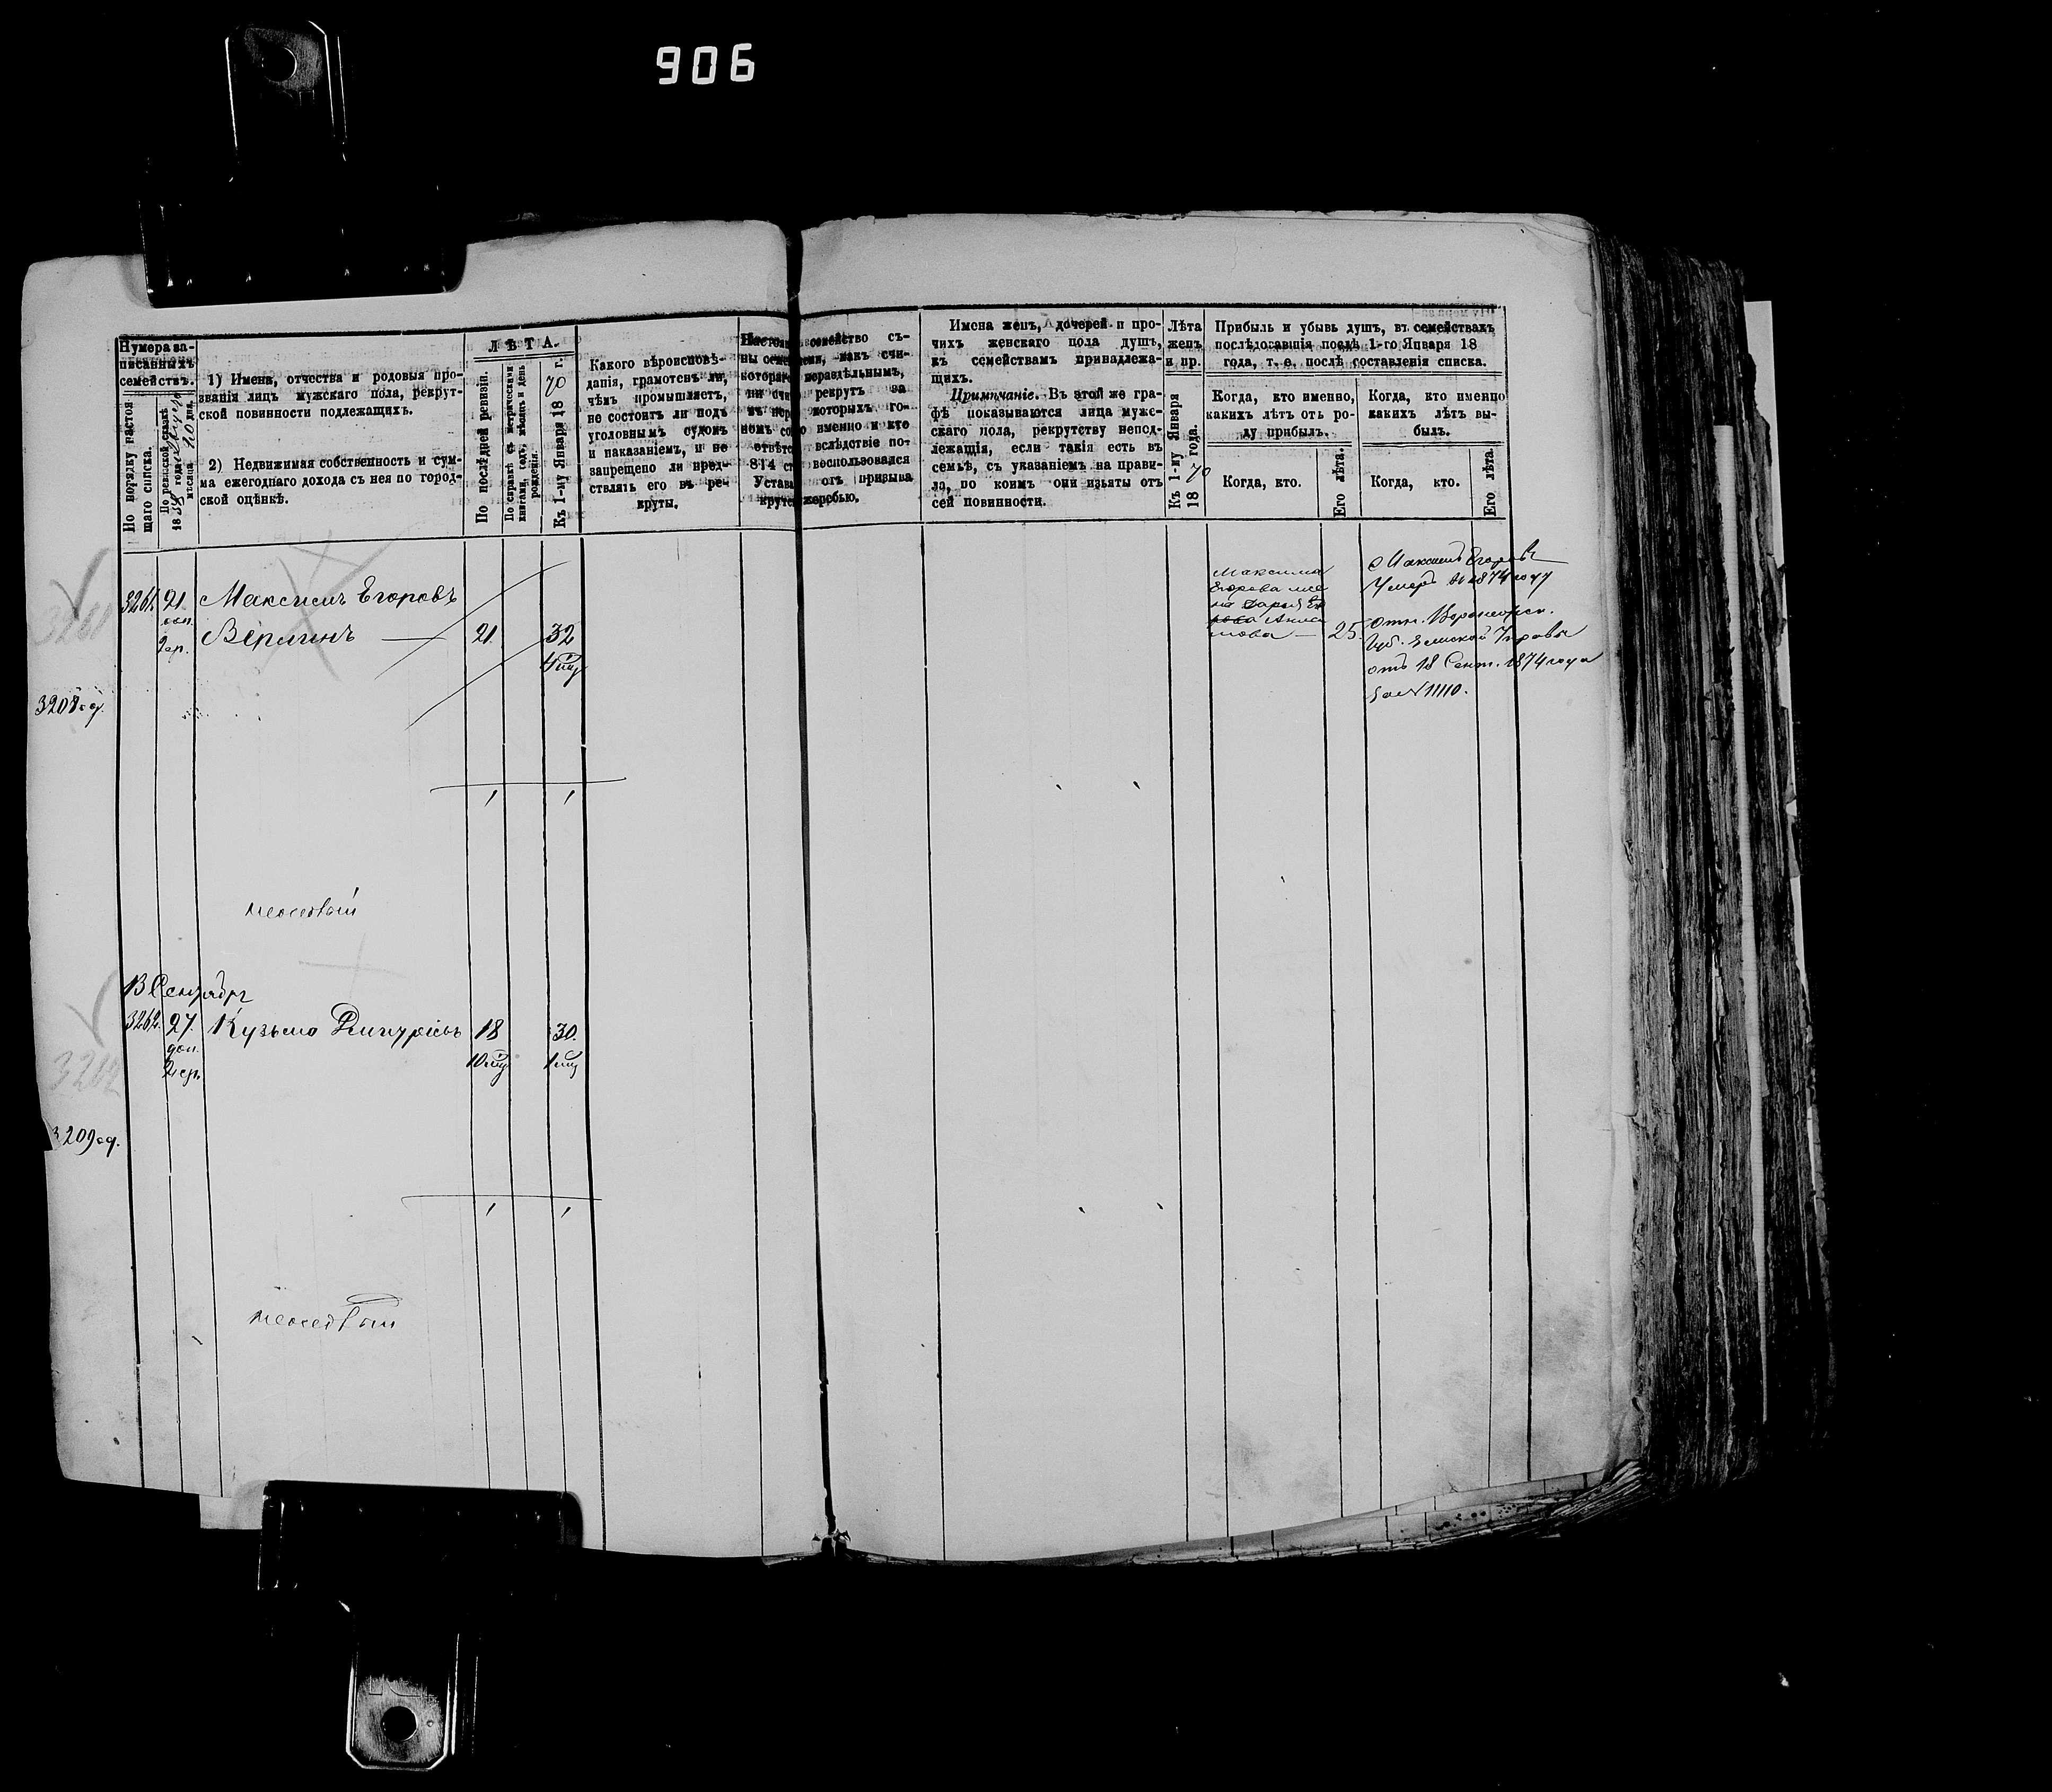 906
Нумера за-
писанныхъ
семействъ.
По порядку настоя-
щаго списка.
По ревизской сказкѣ
18 года
мѣсяца 20 дня.
1) Имена, отчества и родовыя про-
званія лицъ мужскаго пола, рекрут-
ской повинности подлежащихъ.
2) Недвижимая собственность и сум-
ма ежегоднаго дохода съ нея по город-
ской оцѣнкѣ.
ЛѢТА.
По послѣдней ревизіи.
По справкѣ съ метрическими
книгами, годъ, мѣсяцъ и день
рожденія.
Къ 1-му Января 1870 г.
Какого вѣроисповѣ-
данія, грамотенъ ли,
чѣмъ промышляетъ,
не состоитъ ли подъ
уголовнымъ судомъ
и наказаніемъ, и не
запрещено ли пред-
ставлять его въ ре-
круты.
семейство съ-
какъ счи-
нераздѣльнымъ,
рекрутъ за
которыхъ го-
именно и кто
вслѣдствіе по-
814 ст. воспользовался
Устава отъ призыва
жеребью.
Имена женъ, дочерей и про-
чихъ женскаго пола душъ,
къ семействамъ принадлежа-
щихъ.
Примѣчаніе. Въ этой же гра-
фѣ показываются лица муж-
скаго пола, рекрутству непод-
лежащія, если такія есть въ
семьѣ, съ указаніемъ на прави-
ла, по коимъ они изъяты отъ
сей повинности.
Лѣта
женъ
и пр.
Къ 1-му Января
1870 года.
Прибыль и убыль душъ, въ семействахъ
послѣдовавшія послѣ 1-го Января 18
года, т. е. послѣ составленія списка.
Когда, кто именно,
какихъ лѣтъ отъ ро-
ду прибылъ.
Когда, кто именно
какихъ лѣтъ вы-
былъ.
Когда, кто.
Его лѣта.
Когда, кто.
Его лѣта.
3261
3261. 21. Максимъ Егоровъ
доп.
2 ср. Верлинъ — 21. 32
4 мц
3208 ср.
Максима
Егорова же
на Дарья
Аниси
мова — 25.
Максимъ Егоровъ
Умеръ въ 1874 году
отн. Воронежск.
Губ. Земской Управы
отъ 18 Сент. 1874 года
за № 11110.
1 1
13 Сентября
3262
3262. 27. Кузьма 18 30.
доп.
2 ср. 10 мц 1 мц
3209 ср.
1 1